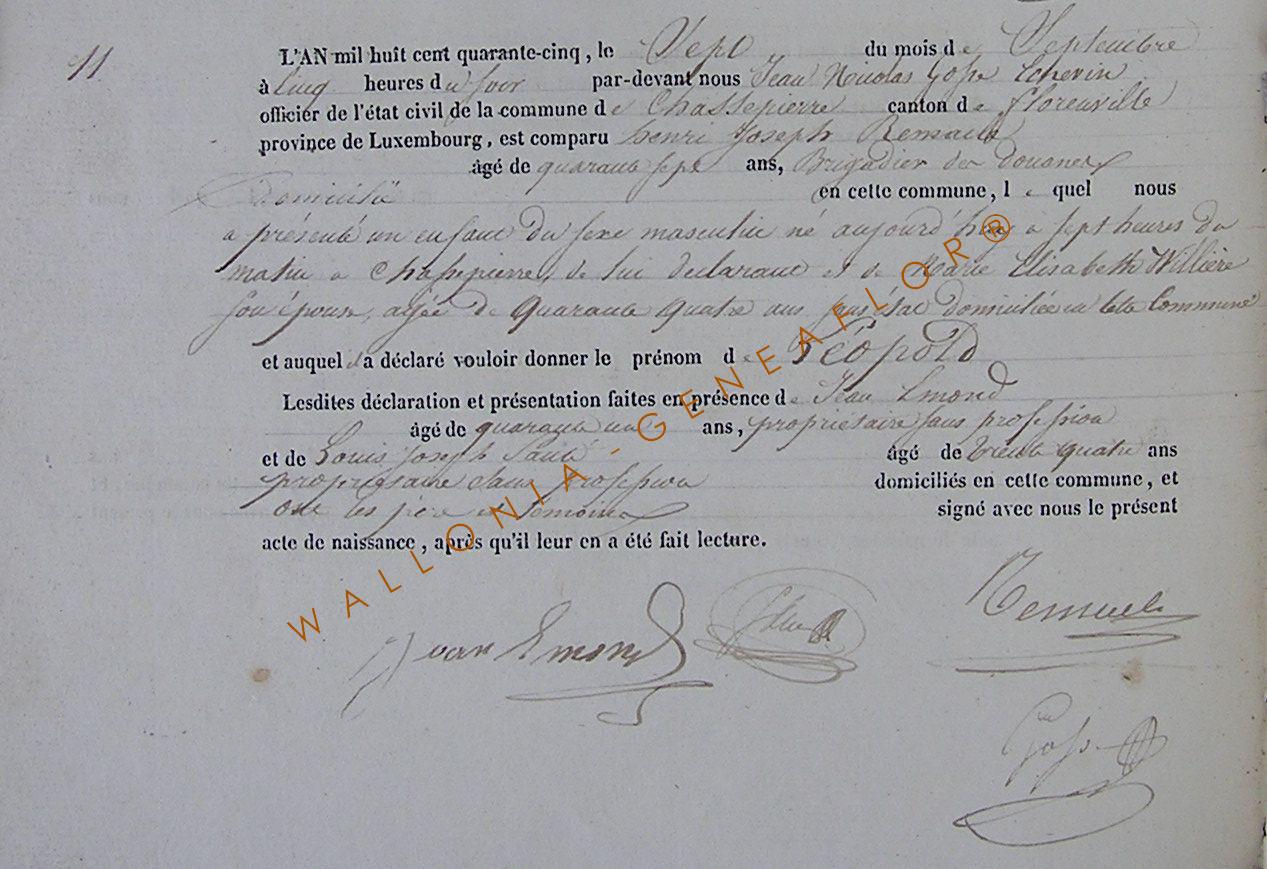 11
L'AN mil huit cent quarante-cinq, le Sept du mois de Septembre
à Cinq heures du soir par-devant nous Jean Nicolas Gosse Echevin
officier de l'état civil de la commune de Chassepierre canton de Florenville
province de Luxembourg, est comparu henri Joseph
âgé de quarante sept ans, Brigadier des Douanes
Domicilié en cette commune, le quel nous
a présenté un enfant du sexe masculin né aujourd'hui à sept heures du
matin à Chassepierre, de lui déclarant et de Marie Elisabeth Willière
son épouse, agée de Quarante quatre ans sans état domiciliée en cette Commune
et auquel il a déclaré vouloir donner le prénom de Léopold
Lesdites déclaration et présentation faites en présence de Jean Emond
âgé de quarante un ans, propriétaire sans profession
et de Louis Joseph âgé de trente quatre ans
propriétaire sans profession domiciliés en cette commune, et
ont les père et témoins signé avec nous le présent
acte de naissance, après qu'il leur en a été fait lecture.
Jean Emond
Gosse
WALLONIA - GENEAFLOR®